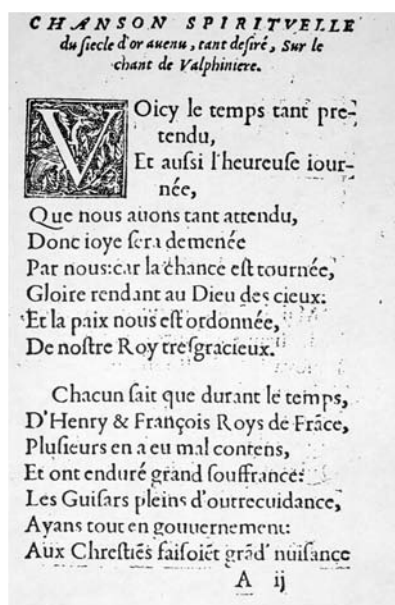 CHANSON SPIRITVELLE
du ſiecle d'or auenu, tant deſiré, Sur le
chant de Valphiniere.
VOicy le temps tant pre-
tendu,
Et auſſi l'heureuſe iour-
née,
Que nous auons tant attendu,
Donc ioye ſera demenée
Par nous: car la chance eſt tournée,
Gloire rendant au Dieu des cieux:
Et la paix nous eſt ordonnée,
De noſtre Roy treſgracieux.
Chacun ſait que durant le temps,
D'Henry & François Roys de Frāce,
Pluſieurs en a eu mal contens,
Et ont enduré grand ſouffrance:
Les Guiſars pleins d'outrecuidance,
Ayans tout en gouuernement:
Aux Chreſtiēs faiſoiēt grād' nuiſance
A ij